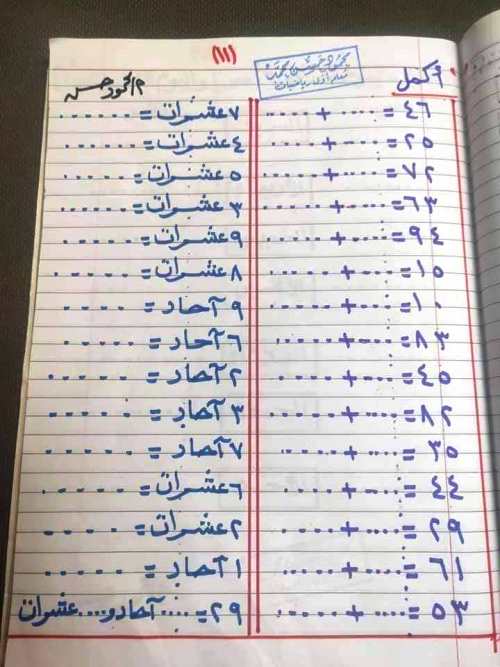 (١١)
أكمل
محمود حسن محمد
معلم أول رياضيات
م/محمود حسن
٤٦ = ..... + .....
٧ عشرات = ......
٢٥ = ..... + .....
٤ عشرات = ......
٧٢ = ..... + .....
٥ عشرات = ......
٦٣ = ..... + .....
٣ عشرات = ......
٩٤ = ..... + .....
٩ عشرات = ......
١٥ = ..... + .....
٨ عشرات = ......
١٠ = ..... + .....
٩ آحاد = ....
٨٣ = ..... + .....
٦ آحاد = ....
٤٥ = ..... + .....
٢ آحاد = .....
٨٢ = ..... + .....
٣ آحاد = .....
٣٥ = ..... + .....
٧ آحاد = .....
٤٤ = ..... + .....
٦ عشرات = .....
٢٩ = ..... + .....
٢ عشرات = .....
٦١ = ..... + .....
١ آحاد = .....
٥٣ = ..... + .....
٢٩ = .... آحاد و .... عشرات